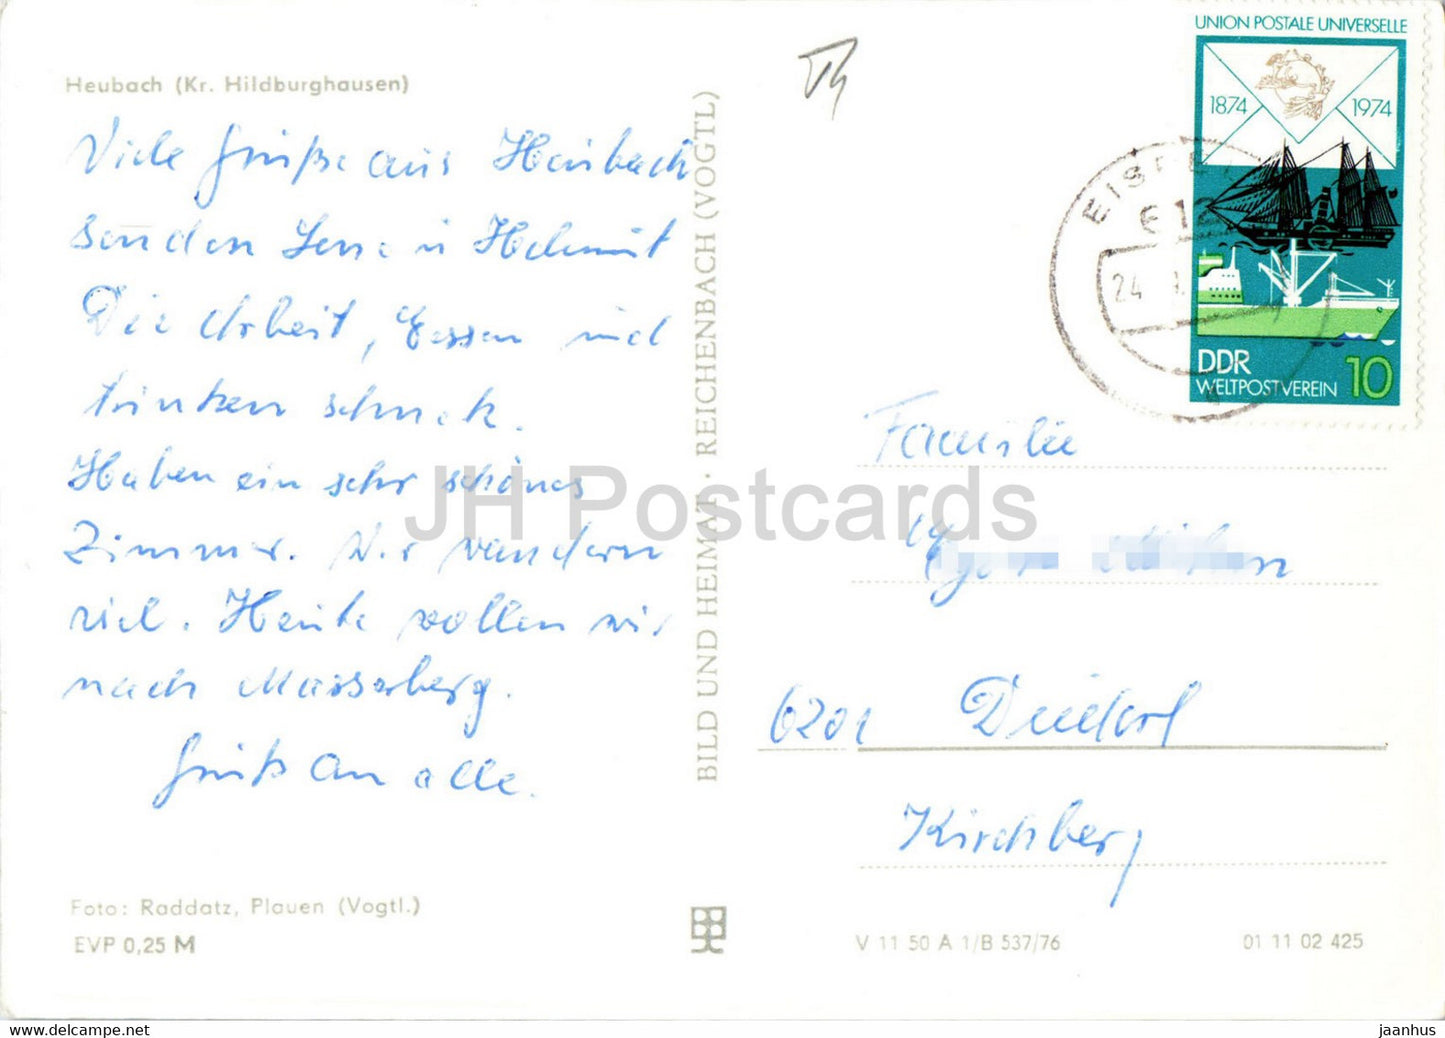 Heubach (Kr. Hildburghausen)
Viele Grüße aus Heubach
senden Lene u Helmut
Die Arbeit, Essen und
trinken schmek.
Haben ein sehr schönes
Zimmer. Wir wandern
viel. Heute wollen wir
nach Masserberg.
Gruß an alle.
Foto: Raddatz, Plauen (Vogtl.)
EVP 0,25 M
BILD UND HEIMAT · REICHENBACH (VOGTL)
UNION POSTALE UNIVERSELLE
1874 1974
DDR 10
WELTPOSTVEREIN
24
Familie
6201
Kirchberg
V 11 50 A 1/B 537/76
01 11 02 425
JH Postcards
hippostcard.com
jaanhus